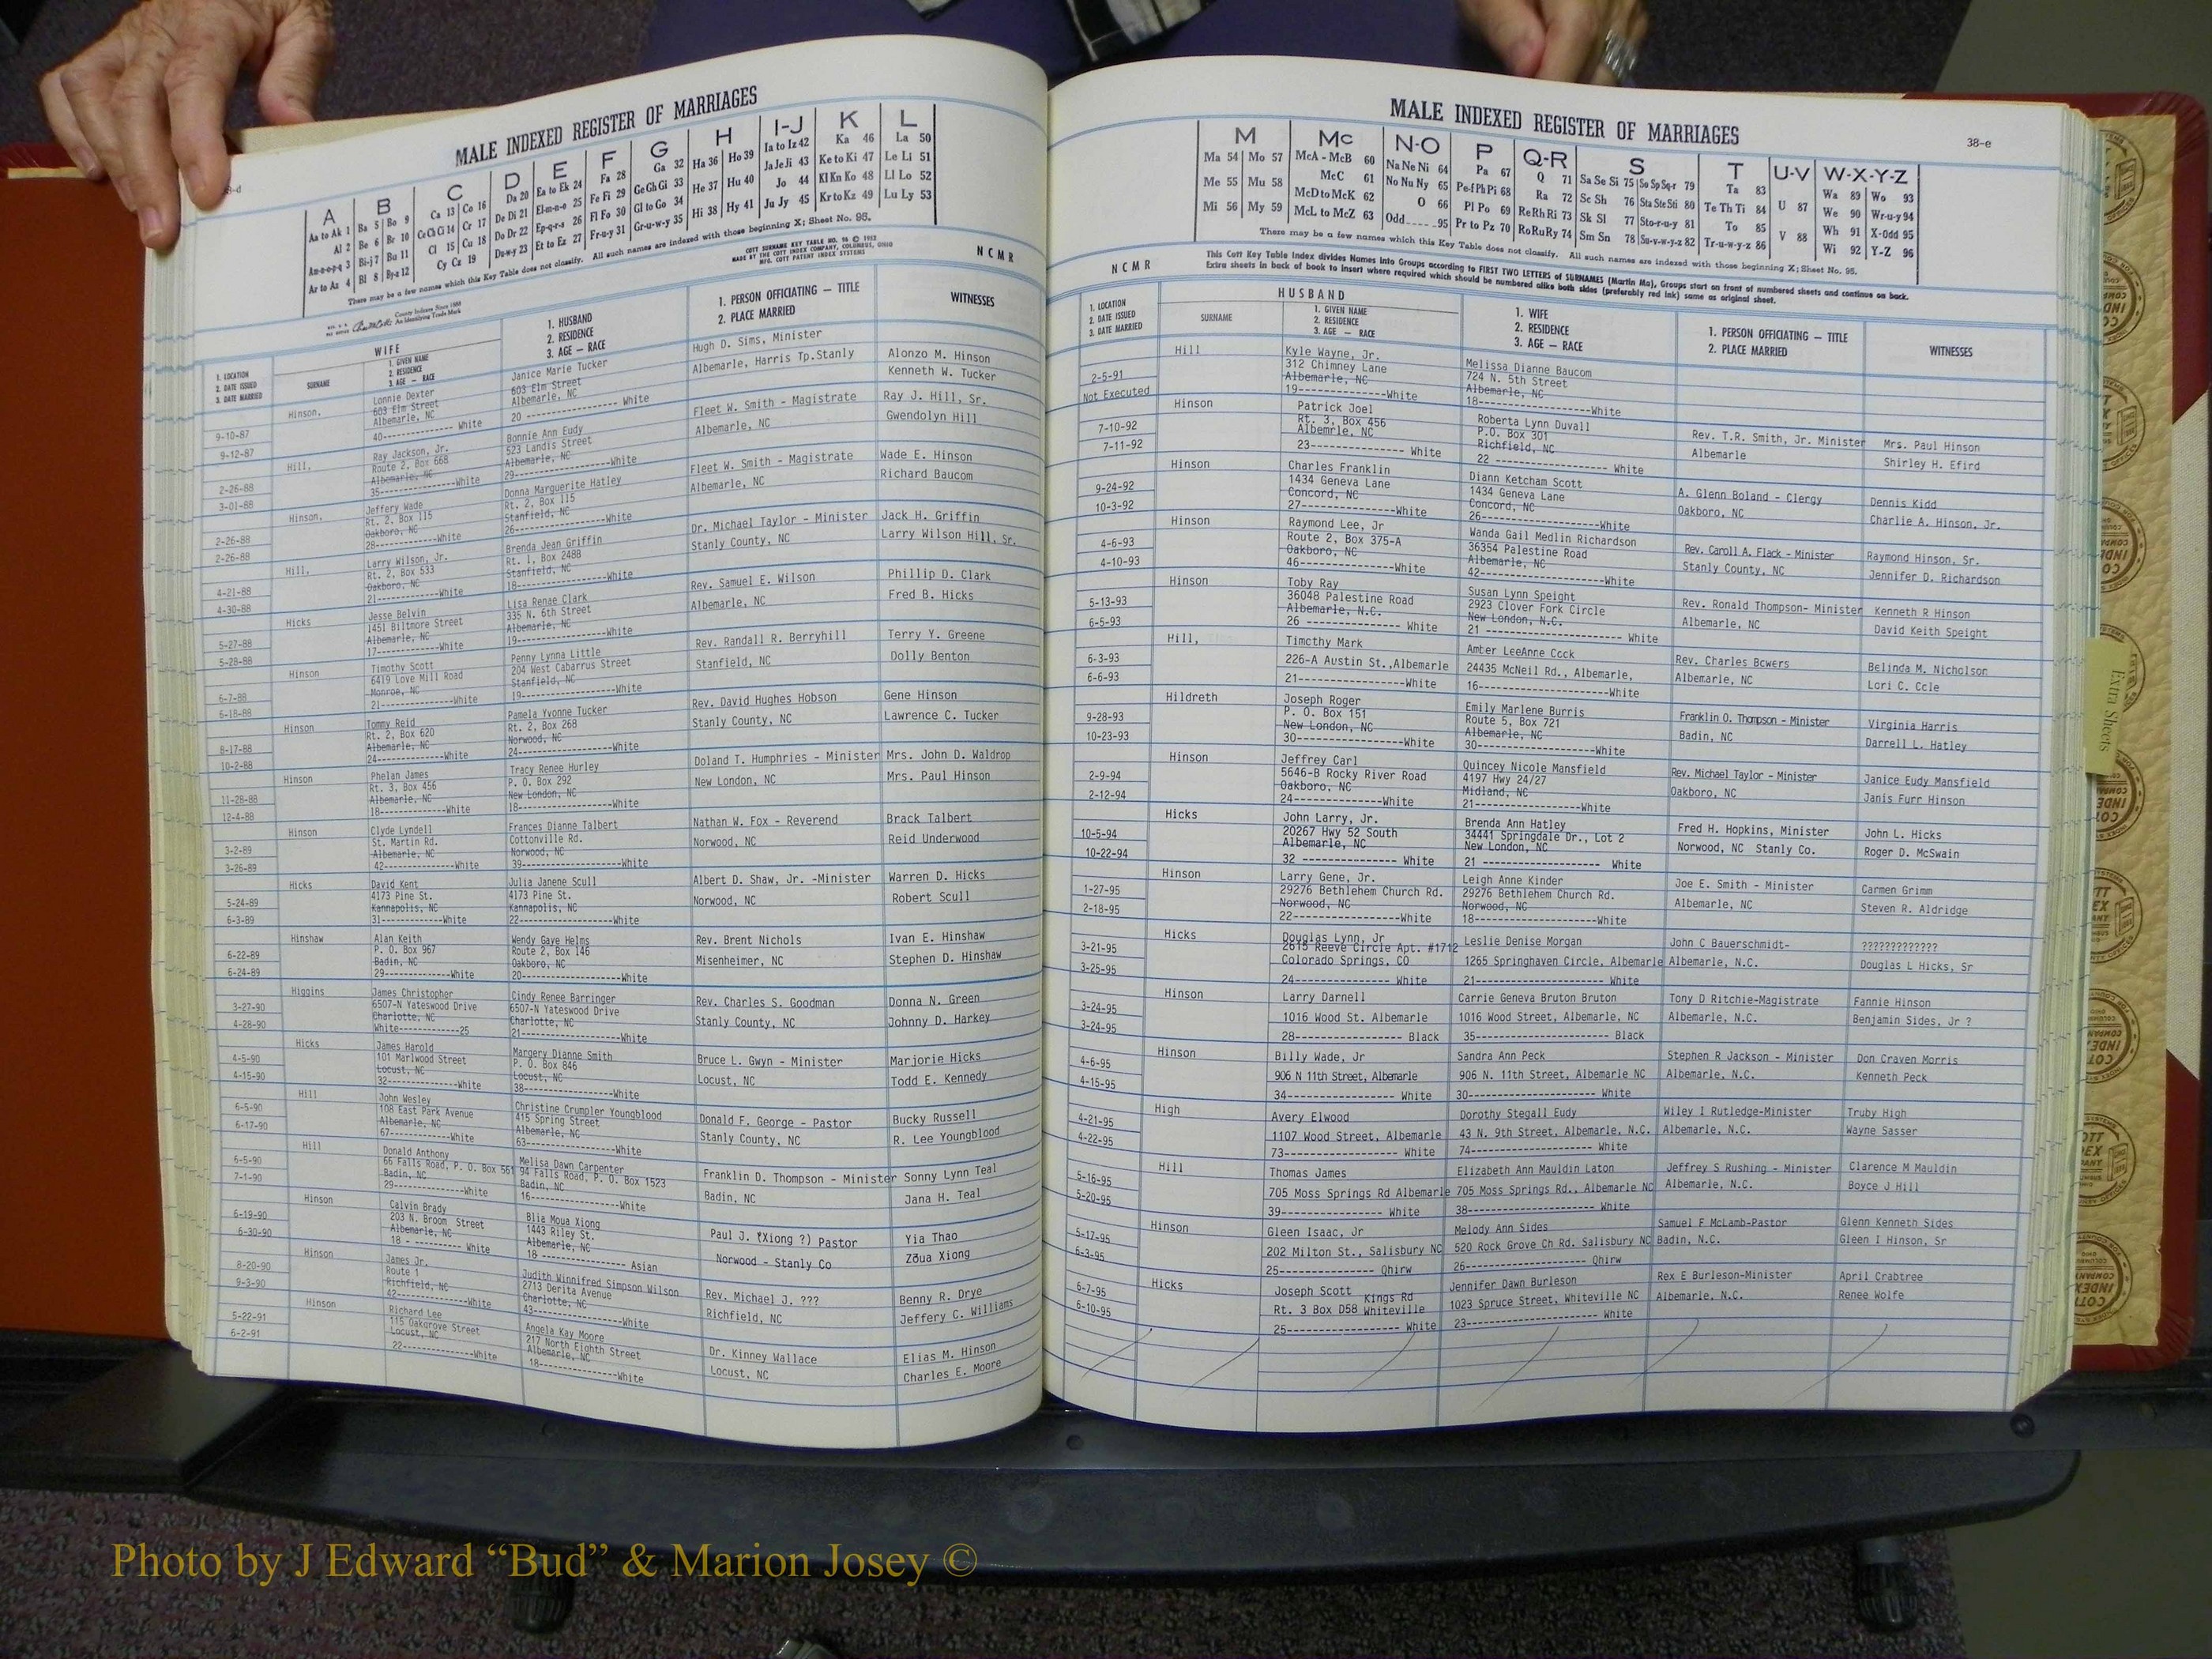 MALE INDEXED REGISTER OF MARRIAGES
A B C D E F G H I-J K L
Aa to Ak 1 Ba 5 Bo 9 Ca 13 Co 16 Da 20 Ea to Ek 24 Fa 28 Ga 32 Ha 36 Ho 39 Ia to Iz 42 Ka 46 La 50
Al 2 Be 6 Br 10 Ce Ch Ci 14 Cr 17 De Di 21 El-m-n-o 25 Fe Fi 29 Ge Gh Gi 33 He 37 Hu 40 Ja Je Ji 43 Ke to Ki 47 Le Li 51
An-o-p-q 3 Bi-j 7 Bu 11 Cl 15 Cu 18 Do Dr 22 Ep-q-r-s 26 Fl Fo 30 Gl to Go 34 Hi 38 Hy 41 Jo 44 Kl Kn Ko 48 Ll Lo 52
Ar to Az 4 Bl 8 By-z 12 Cy Cz 19 Du-w-y 23 Et to Ez 27 Fr-u-y 31 Gr-u-w-y 35 Ju Jy 45 Kr to Kz 49 Lu Ly 53
There may be a few names which this Key Table does not classify. All such names are indexed with those beginning X; Sheet No. 95.
COTT SURNAME KEY TABLE NO. 96 © 1952
MADE BY THE COTT INDEX COMPANY, COLUMBUS, OHIO
MFG. COTT PATENT INDEX SYSTEMS
County Indexes Since 1888
An Identifying Trade Mark
NCMR
1. LOCATION
2. DATE ISSUED
3. DATE MARRIED
WIFE
SURNAME
1. GIVEN NAME
2. RESIDENCE
3. AGE — RACE
1. HUSBAND
2. RESIDENCE
3. AGE — RACE
1. PERSON OFFICIATING — TITLE
2. PLACE MARRIED
WITNESSES
9-10-87
9-12-87
Hinson,
Lonnie Dexter
603 Elm Street
Albemarle, NC
40------------- White
Janice Marie Tucker
603 Elm Street
Albemarle, NC
20 ---------------- White
Hugh D. Sims, Minister
Albemarle, Harris Tp.Stanly
Alonzo M. Hinson
Kenneth W. Tucker
2-26-88
3-01-88
Hill,
Ray Jackson, Jr.
Route 2, Box 668
Albemarle, NC
35--------------White
Bonnie Ann Eudy
523 Landis Street
Albemarle, NC
29------------------White
Fleet W. Smith - Magistrate
Albemarle, NC
Ray J. Hill, Sr.
Gwendolyn Hill
2-26-88
2-26-88
Hinson,
Jeffery Wade
Rt. 2, Box 115
Oakboro, NC
28--------------White
Donna Marguerite Hatley
Rt. 2, Box 115
Stanfield, NC
26------------------White
Fleet W. Smith - Magistrate
Albemarle, NC
Wade E. Hinson
Richard Baucom
4-21-88
4-30-88
Hill,
Larry Wilson, Jr.
Rt. 2, Box 533
Oakboro, NC
21--------------White
Brenda Jean Griffin
Rt. 1, Box 248B
Stanfield, NC
18------------------White
Dr. Michael Taylor - Minister
Stanly County, NC
Jack H. Griffin
Larry Wilson Hill, Sr.
5-27-88
5-28-88
Hicks
Jesse Belvin
1451 Biltmore Street
Albemarle, NC
17--------------White
Lisa Renae Clark
335 N. 6th Street
Albemarle, NC
19------------------White
Rev. Samuel E. Wilson
Albemarle, NC
Phillip D. Clark
Fred B. Hicks
6-7-88
6-18-88
Hinson
Timothy Scott
6419 Love Mill Road
Monroe, NC
21--------------White
Penny Lynna Little
204 West Cabarrus Street
Stanfield, NC
19------------------White
Rev. Randall R. Berryhill
Stanfield, NC
Terry Y. Greene
Dolly Benton
8-17-88
10-2-88
Hinson
Tommy Reid
Rt. 2, Box 620
Albemarle, NC
24--------------White
Pamela Yvonne Tucker
Rt. 2, Box 268
Norwood, NC
24------------------White
Rev. David Hughes Hobson
Stanly County, NC
Gene Hinson
Lawrence C. Tucker
11-28-88
12-4-88
Hinson
Phelan James
Rt. 3, Box 456
Albemarle, NC
18--------------White
Tracy Renee Hurley
P. O. Box 292
New London, NC
18------------------White
Doland T. Humphries - Minister
New London, NC
Mrs. John D. Waldrop
Mrs. Paul Hinson
3-2-89
3-26-89
Hinson
Clyde Lyndell
St. Martin Rd.
Albemarle, NC
42--------------White
Frances Dianne Talbert
Cottonville Rd.
Norwood, NC
39--------------------White
Nathan W. Fox - Reverend
Norwood, NC
Brack Talbert
Reid Underwood
5-24-89
6-3-89
Hicks
David Kent
4173 Pine St.
Kannapolis, NC
31------------White
Julia Janene Scull
4173 Pine St.
Kannapolis, NC
22------------------White
Albert D. Shaw, Jr. -Minister
Norwood, NC
Warren D. Hicks
Robert Scull
6-22-89
6-24-89
Hinshaw
Alan Keith
P. O. Box 967
Badin, NC
29-------------White
Wendy Gaye Helms
Route 2, Box 146
Oakboro, NC
20-------------------White
Rev. Brent Nichols
Misenheimer, NC
Ivan E. Hinshaw
Stephen D. Hinshaw
3-27-90
4-28-90
Higgins
James Christopher
6507-N Yateswood Drive
Charlotte, NC
White------------25
Cindy Renee Barringer
6507-N Yateswood Drive
Charlotte, NC
21-------------------White
Rev. Charles S. Goodman
Stanly County, NC
Donna N. Green
Johnny D. Harkey
4-5-90
4-15-90
Hicks
James Harold
101 Marlwood Street
Locust, NC
32--------------White
Margery Dianne Smith
P. O. Box 846
Locust, NC
38-----------------White
Bruce L. Gwyn - Minister
Locust, NC
Marjorie Hicks
Todd E. Kennedy
6-5-90
6-17-90
Hill
John Wesley
108 East Park Avenue
Albemarle, NC
67------------White
Christine Crumpler Youngblood
415 Spring Street
Albemarle, NC
63-----------------White
Donald F. George - Pastor
Stanly County, NC
Bucky Russell
R. Lee Youngblood
6-5-90
7-1-90
Hill
Donald Anthony
66 Falls Road, P. O. Box 561
Badin, NC
29--------------White
Melisa Dawn Carpenter
94 Falls Road, P. O. Box 1523
Badin, NC
16------------------White
Franklin D. Thompson - Minister
Badin, NC
Sonny Lynn Teal
Jana H. Teal
6-19-90
6-30-90
Hinson
Calvin Brady
203 N. Broom Street
Albemarle, NC
18 - ---------- White
Blia Moua Xiong
1443 Riley St.
Albemarle, NC
18 --------------- Asian
Paul J. (Xiong ?) Pastor
Norwood - Stanly Co
Yia Thao
Zoua Xiong
8-20-90
9-3-90
Hinson
James Jr.
Route 1
Richfield, NC
42--------------White
Judith Winnifred Simpson Wilson
2713 Derita Avenue
Charlotte, NC
43-----------------White
Rev. Michael J. ???
Richfield, NC
Benny R. Drye
Jeffery C. Williams
5-22-91
6-2-91
Hinson
Richard Lee
115 Oakgrove Street
Locust, NC
22---------------White
Angela Kay Moore
217 North Eighth Street
Albemarle, NC
18---------------White
Dr. Kinney Wallace
Locust, NC
Elias M. Hinson
Charles E. Moore
MALE INDEXED REGISTER OF MARRIAGES
38-e
M Mc N-O P Q-R S T U-V W-X-Y-Z
Ma 54 Mo 57 McA - McB 60 Na Ne Ni 64 Pa 67 Q 71 Sa Se Si 75 So Sp Sq-r 79 Ta 83 Wa 89 Wo 93
Me 55 Mu 58 McC 61 No Nu Ny 65 Pe-f Ph Pi 68 Ra 72 Sc Sh 76 Sta Ste Sti 80 Te Th Ti 84 U 87 We 90 Wr-u-y 94
Mi 56 My 59 McD to McK 62 O 66 Pl Po 69 Re Rh Ri 73 Sk Sl 77 Sto-r-u-y 81 To 85 V 88 Wh 91 X-Odd 95
McL to McZ 63 Odd 95 Pr to Pz 70 Ro Ru Ry 74 Sm Sn 78 Su-v-w-y-z 82 Tr-u-w-y-z 86 Wi 92 Y-Z 96
There may be a few names which this Key Table does not classify. All such names are indexed with those beginning X; Sheet No. 95.
This Cott Key Table Index divides Names into Groups according to FIRST TWO LETTERS of SURNAMES (Martin Ma), Groups start on front of numbered sheets and continue on back.
Extra sheets in back of book to insert where required which should be numbered alike both sides (preferably red ink) same as original sheet.
NCMR
1. LOCATION
2. DATE ISSUED
3. DATE MARRIED
HUSBAND
SURNAME
1. GIVEN NAME
2. RESIDENCE
3. AGE — RACE
1. WIFE
2. RESIDENCE
3. AGE — RACE
1. PERSON OFFICIATING — TITLE
2. PLACE MARRIED
WITNESSES
2-5-91
Not Executed
Hill
Kyle Wayne, Jr.
312 Chimney Lane
Albemarle, NC
19--------------White
Melissa Dianne Baucom
724 N. 5th Street
Albemarle, NC
18-------------------White
7-10-92
7-11-92
Hinson
Patrick Joel
Rt. 3, Box 456
Albemrle, NC
23-------------- White
Roberta Lynn Duvall
P.O. Box 301
Richfield, NC
22 ------------------ White
Rev. T.R. Smith, Jr. Minister
Albemarle
Mrs. Paul Hinson
Shirley H. Efird
9-24-92
10-3-92
Hinson
Charles Franklin
1434 Geneva Lane
Concord, NC
27--------------White
Diann Ketcham Scott
1434 Geneva Lane
Concord, NC
26-------------------White
A. Glenn Boland - Clergy
Oakboro, NC
Dennis Kidd
Charlie A. Hinson, Jr.
4-6-93
4-10-93
Hinson
Raymond Lee, Jr
Route 2, Box 375-A
Oakboro, NC
46--------------White
Wanda Gail Medlin Richardson
36354 Palestine Road
Albemarle, NC
42-------------------White
Rev. Caroll A. Flack - Minister
Stanly County, NC
Raymond Hinson, Sr.
Jennifer D. Richardson
5-13-93
6-5-93
Hinson
Toby Ray
36048 Palestine Road
Albemarle, N.C.
26 ------------- White
Susan Lynn Speight
2923 Clover Fork Circle
New London, N.C.
21 -------------------- White
Rev. Ronald Thompson- Minister
Albemarle, NC
Kenneth R Hinson
David Keith Speight
6-3-93
6-6-93
Hill,
Timothy Mark
226-A Austin St.,Albemarle
21-----------------White
Amber LeeAnne Cock
24435 McNeil Rd., Albemarle,
16-------------------White
Rev. Charles Bowers
Albemarle, NC
Belinda M. Nicholson
Lori C. Cole
9-28-93
10-23-93
Hildreth
Joseph Roger
P. O. Box 151
New London, NC
30-----------------White
Emily Marlene Burris
Route 5, Box 721
Albemarle, NC
30-----------------White
Franklin O. Thompson - Minister
Badin, NC
Virginia Harris
Darrell L. Hatley
2-9-94
2-12-94
Hinson
Jeffrey Carl
5646-B Rocky River Road
Oakboro, NC
24--------------White
Quincey Nicole Mansfield
4197 Hwy 24/27
Midland, NC
21---------------White
Rev. Michael Taylor - Minister
Oakboro, NC
Janice Eudy Mansfield
Janis Furr Hinson
10-5-94
10-22-94
Hicks
John Larry, Jr.
20267 Hwy 52 South
Albemarle, NC
32 -------------- White
Brenda Ann Hatley
34441 Springdale Dr., Lot 2
New London, NC
21 ------------------ White
Fred H. Hopkins, Minister
Norwood, NC Stanly Co.
John L. Hicks
Roger D. McSwain
1-27-95
2-18-95
Hinson
Larry Gene, Jr.
29276 Bethlehem Church Rd.
Norwood, NC
22-----------------White
Leigh Anne Kinder
29276 Bethlehem Church Rd.
Norwood, NC
18-------------------White
Joe E. Smith - Minister
Albemarle, NC
Carmen Grimm
Steven R. Aldridge
3-21-95
3-25-95
Hicks
Douglas Lynn, Jr
2615 Reeve Circle Apt. #1712
Colorado Springs, CO
24----------------- White
Leslie Denise Morgan
1265 Springhaven Circle, Albemarle
21------------------ White
John C Bauerschmidt-
Albemarle, N.C.
?????????????
Douglas L Hicks, Sr
3-24-95
3-24-95
Hinson
Larry Darnell
1016 Wood St. Albemarle
28----------------- Black
Carrie Geneva Bruton Bruton
1016 Wood Street, Albemarle, NC
35------------------ Black
Tony D Ritchie-Magistrate
Albemarle, N.C.
Fannie Hinson
Benjamin Sides, Jr ?
4-6-95
4-15-95
Hinson
Billy Wade, Jr
906 N 11th Street, Albemarle
34---------------- White
Sandra Ann Peck
906 N. 11th Street, Albemarle NC
30------------------ White
Stephen R Jackson - Minister
Albemarle, N.C.
Don Craven Morris
Kenneth Peck
4-21-95
4-22-95
High
Avery Elwood
1107 Wood Street, Albemarle
73---------------- White
Dorothy Stegall Eudy
43 N. 9th Street, Albemarle, N.C.
74------------------ White
Wiley I Rutledge-Minister
Albemarle, N.C.
Truby High
Wayne Sasser
5-16-95
5-20-95
Hill
Thomas James
705 Moss Springs Rd Albemarle
39---------------- White
Elizabeth Ann Mauldin Laton
705 Moss Springs Rd., Albemarle NC
38------------------ White
Jeffrey S Rushing - Minister
Albemarle, N.C.
Clarence M Mauldin
Boyce J Hill
5-17-95
6-3-95
Hinson
Gleen Isaac, Jr
202 Milton St., Salisbury NC
25-------------- Qhirw
Melody Ann Sides
520 Rock Grove Ch Rd. Salisbury NC
26----------------- Qhirw
Samuel F McLamb-Pastor
Badin, N.C.
Glenn Kenneth Sides
Gleen I Hinson, Sr
6-7-95
6-10-95
Hicks
Joseph Scott
Kings Rd
Rt. 3 Box D58 Whiteville
25----------------- White
Jennifer Dawn Burleson
1023 Spruce Street, Whiteville NC
23------------------- White
Rex E Burleson-Minister
Albemarle, N.C.
April Crabtree
Renee Wolfe
Extra Sheets
Photo by J Edward “Bud” & Marion Josey ©